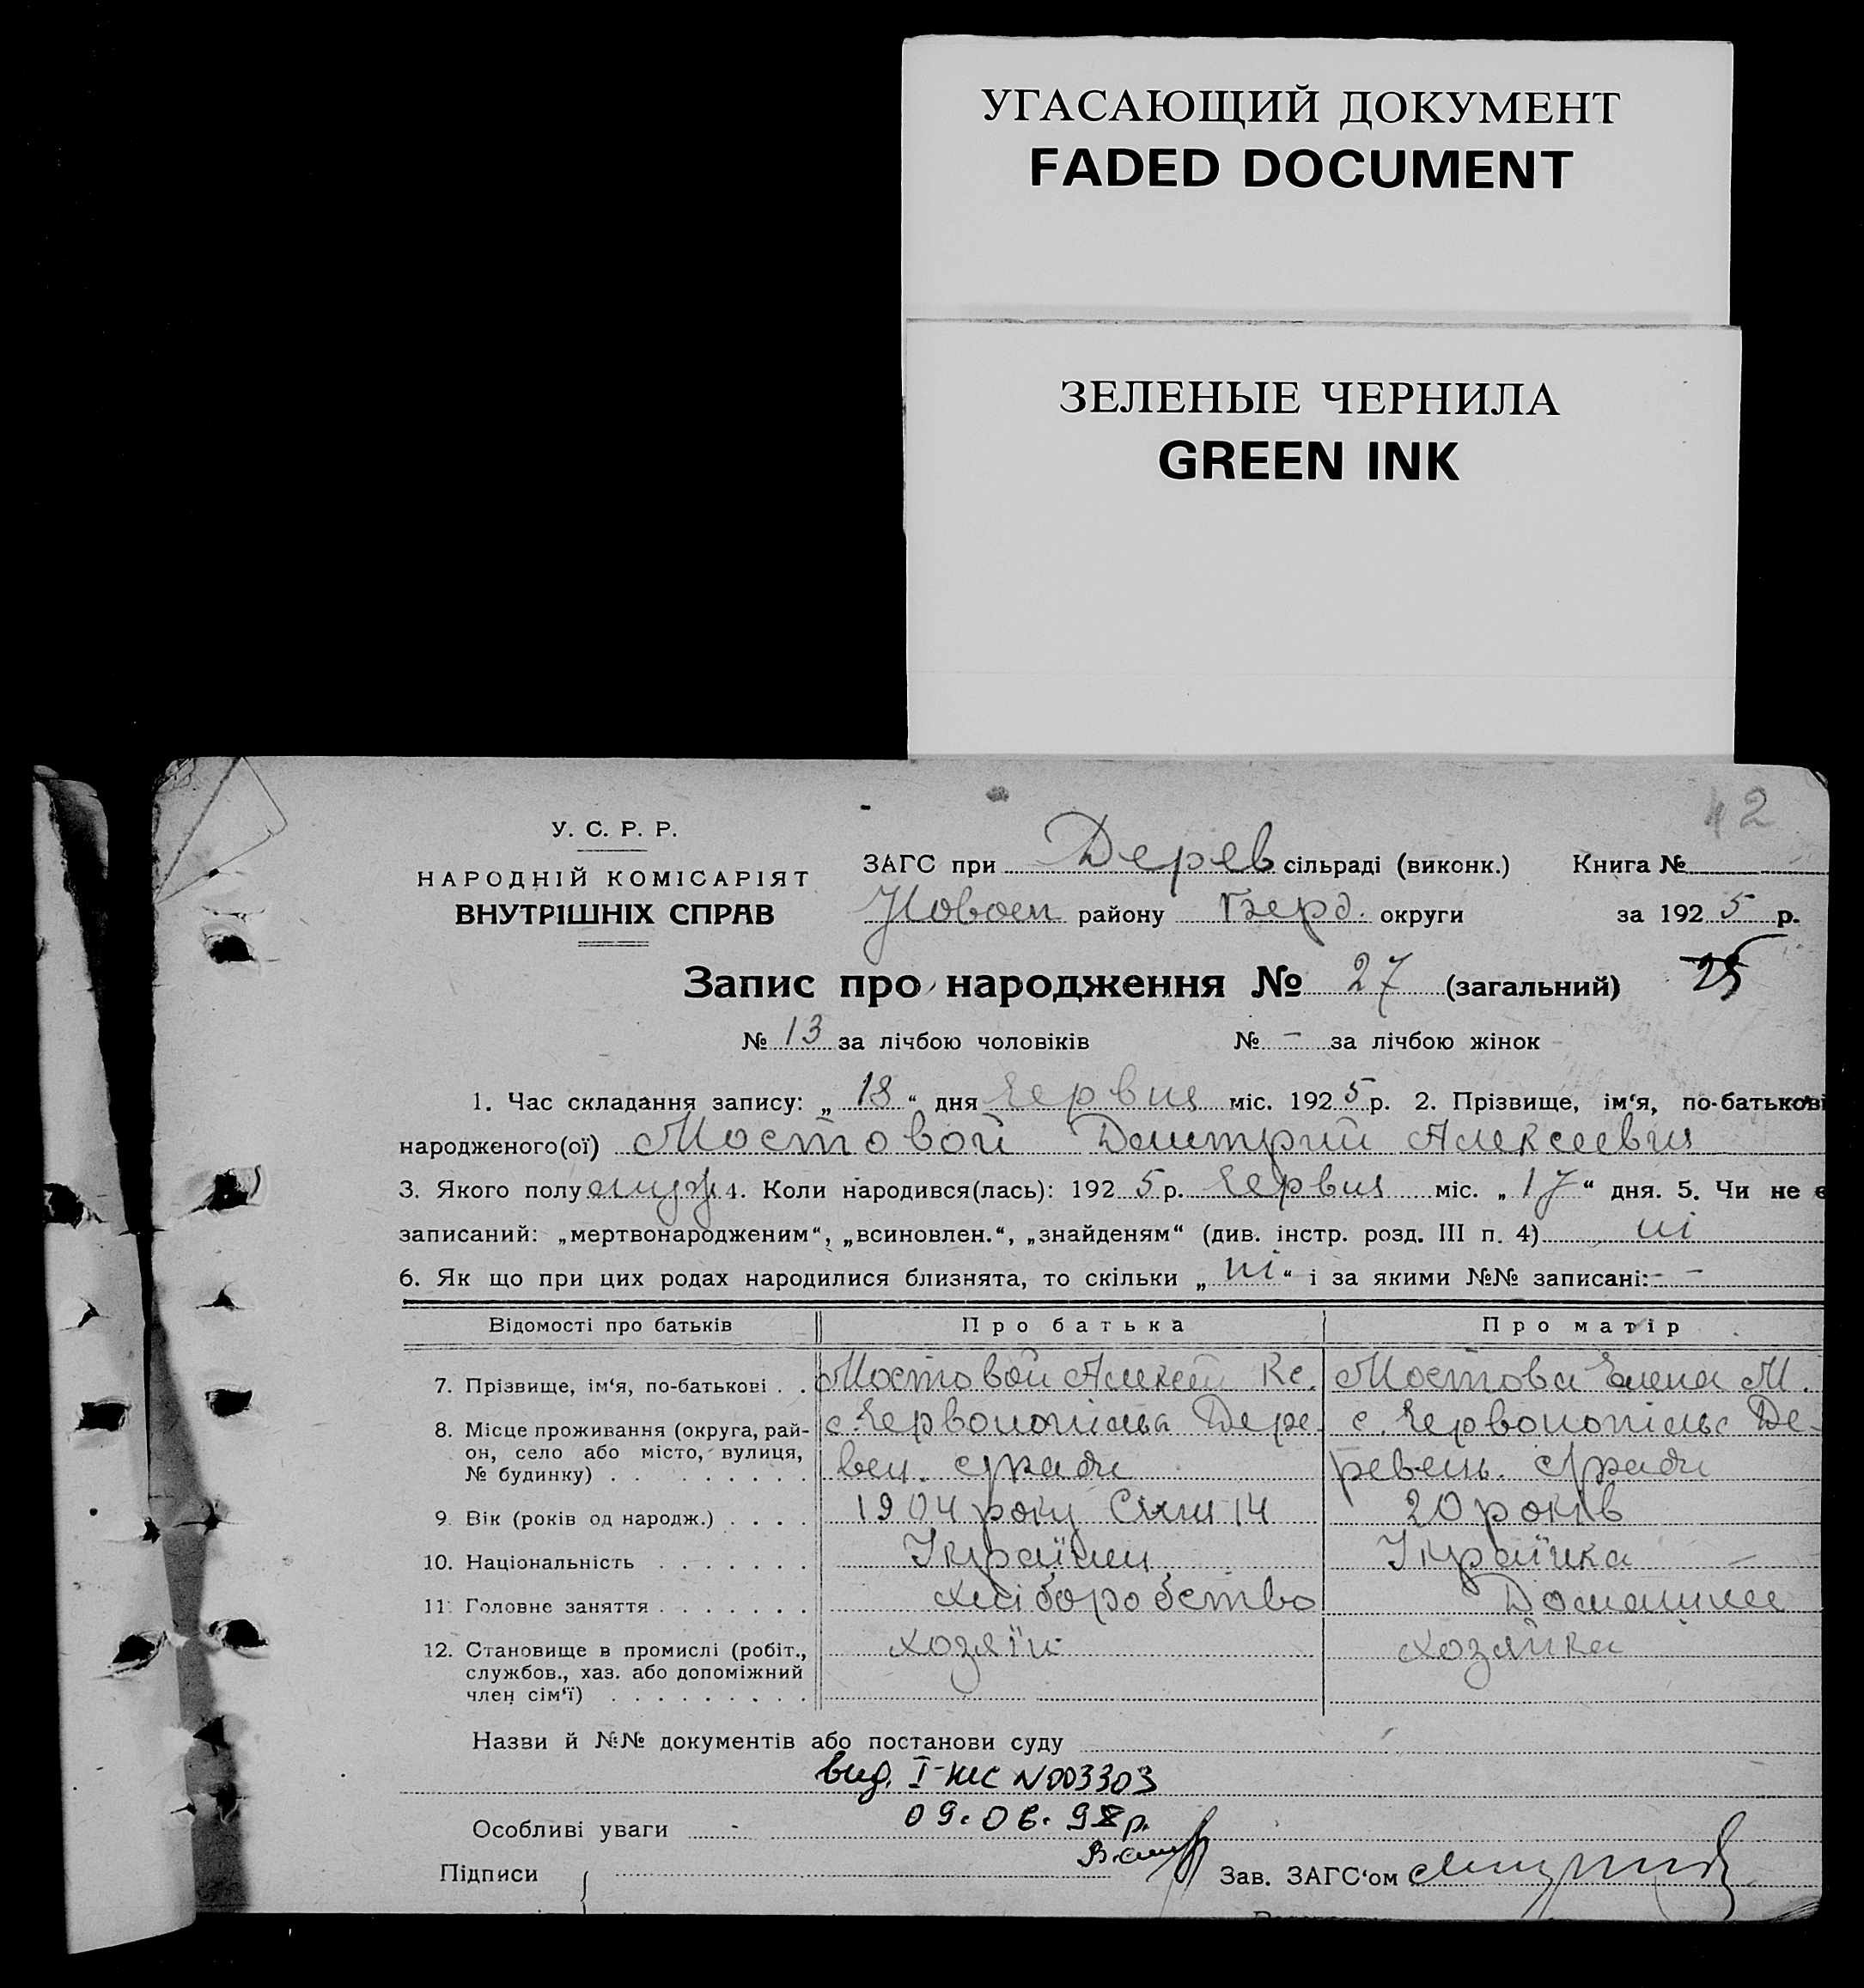 УГАСАЮЩИЙ ДОКУМЕНТ
FADED DOCUMENT
ЗЕЛЕНЫЕ ЧЕРНИЛА
GREEN INK
42
У. С. Р. Р.
НАРОДНІЙ КОМІСАРІЯТ
ВНУТРІШНІХ СПРАВ
ЗАГС при Дерев сільраді (виконк.) Книга №
Новосп району Берд. округи за 1925 р.
Запис про народження № 27 (загальний) 25
№ 13 за лічбою чоловіків № - за лічбою жінок
1. Час складання запису: „18“ дня Червня міс. 1925 р. 2. Прізвище, ім‘я, по-батькові
народженого(ої) Мостовой Дмитрий Алексеевич
3. Якого полу муж 4. Коли народився(лась): 1925 р. Червня міс. „17“ дня. 5. Чи не є
записаний: „мертвонародженим“, „всиновлен.“, „знайденям“ (див. інстр. розд. III п. 4) ні
6. Як що при цих родах народилися близнята, то скільки „ні“ і за якими №№ записані: - -
Відомості про батьків Про батька Про матір
7. Прізвище, ім‘я, по-батькові . . Мостовой Алексей Кс. Мостова Елена М.
8. Місце проживання (округа, рай- с. Червонопілья Дере- с. Червонопільс Де-
он, село або місто, вулиця, вец. с/ради ревець. с/ради
№ будинку) . . . . . . . . .
9. Вік (років од народж.) . . . . 1904 року Січня 14 20 років
10. Національність . . . . . . . Українец Українка
11. Головне заняття . . . . . . . хліборобство Домашнее
12. Становище в промислі (робіт., хозяїн хозяйка
службов., хаз. або допоміжний
член сім‘ї) . . . . . . . . .
Назви й №№ документів або постанови суду
вид. I-ЖС N003303
Особливі уваги - 09.06.98р.
Підписи Зав. ЗАГС‘ом